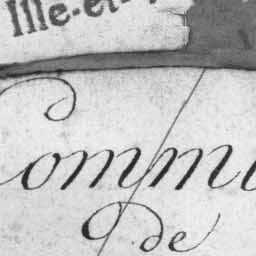 Ille-et-
Commu
De